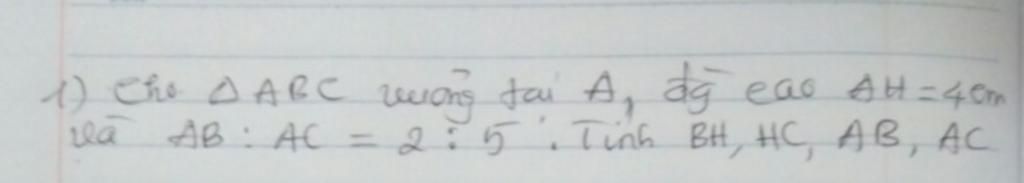 1) Cho Δ ABC vuông tại A, đg cao AH = 4cm
và AB : AC = 2 : 5 . Tính BH, HC, AB, AC